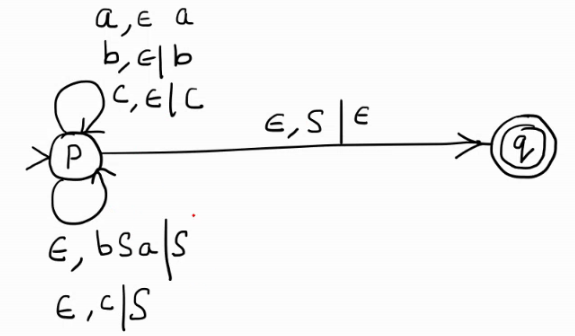 a, ϵ a
b, ϵ|b
c, ϵ|c
ϵ, S|ϵ
p
q
ϵ, bSa|S
ϵ, c|S